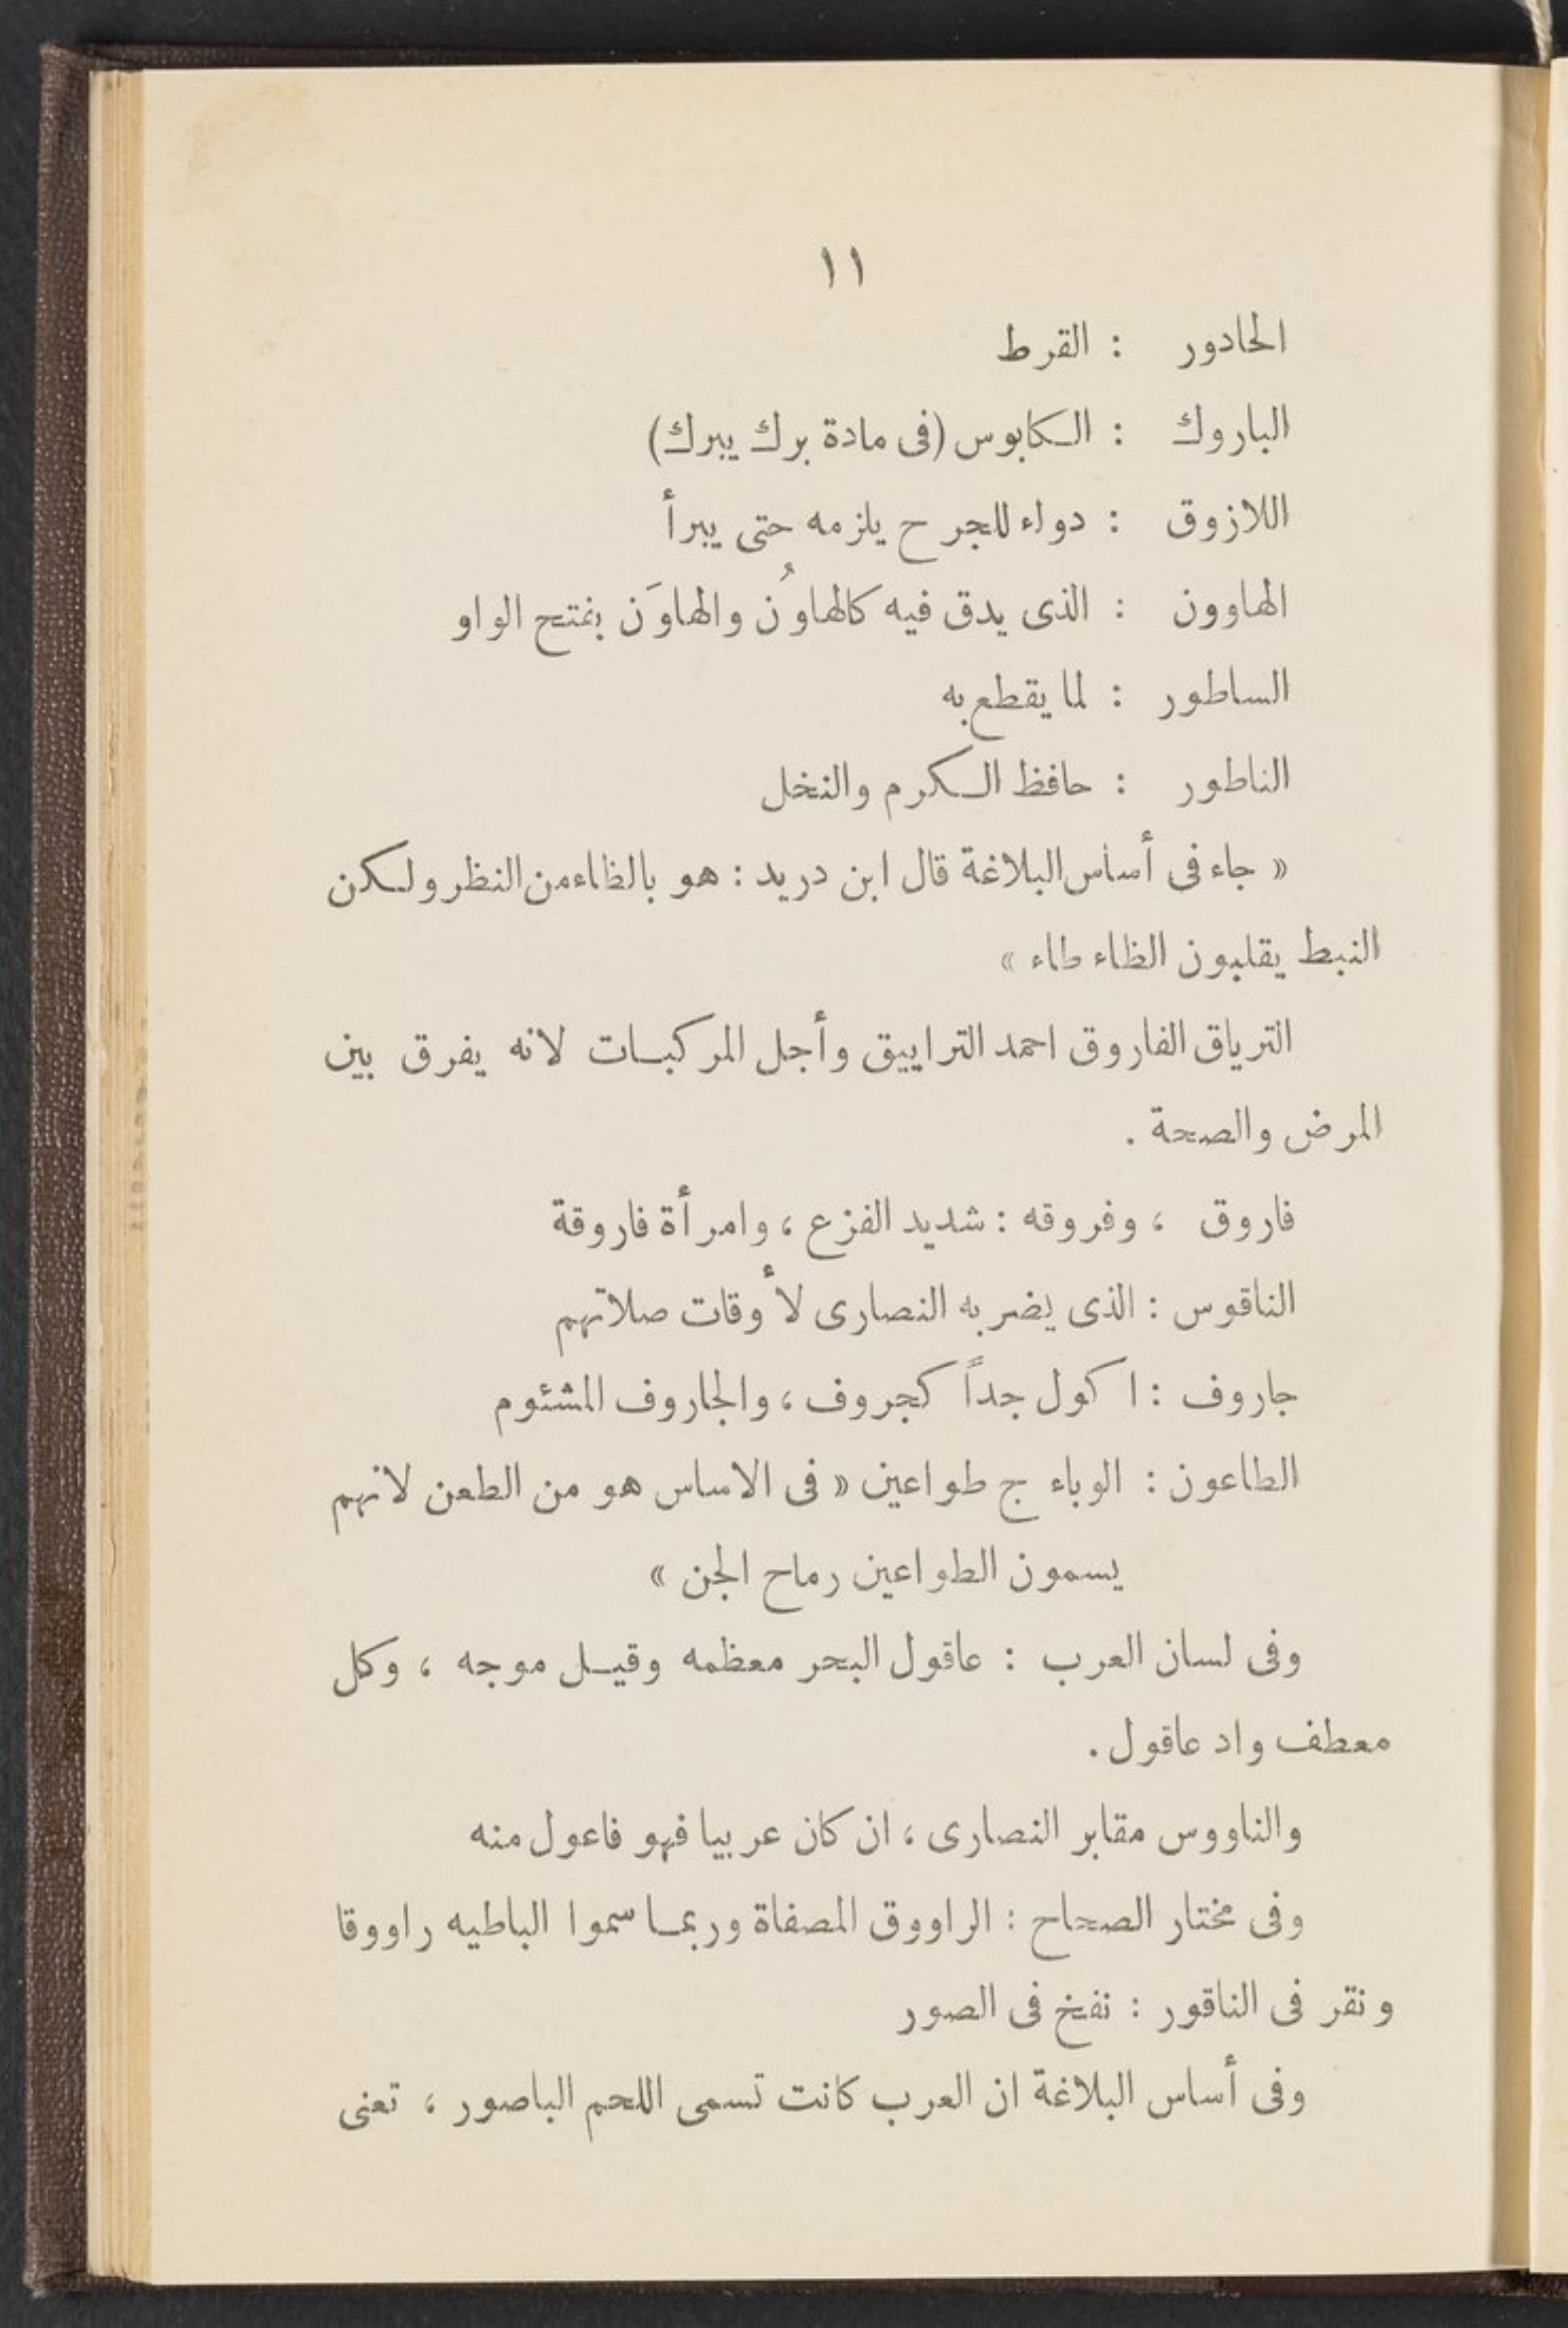 ١١
الحادور : القرط
الباروك : الكابوس (فى مادة برك يبرك)
اللازوق : دواء للجرح يلزمه حتى يبرأ
الهاوون : الذى يدق فيه كالهاوُن والهاوَن بفتح الواو
الساطور : لما يقطع به
الناطور : حافظ الكرم والنخل
« جاء فى أساس البلاغة قال ابن دريد : هو بالظاء من النظر ولكن
النبط يقلبون الظاء طاء »
الترياق الفاروق احمد الترايبق وأجل المركبات لانه يفرق بين
المرض والصحة .
فاروق ، وفروقه : شديد الفزع ، وامرأة فاروقة
الناقوس : الذى يضربه النصارى لأوقات صلاتهم
جاروف : اكول جداً كجروف ، والجاروف المشئوم
الطاعون : الوباء ج طواعين « فى الاساس هو من الطعن لانهم
يسمون الطواعين رماح الجن »
وفى لسان العرب : عاقول البحر معظمه وقيل موجه ، وكل
معطف واد عاقول .
والناووس مقابر النصارى ، ان كان عربيا فهو فاعول منه
وفى مختار الصحاح : الراووق المصفاة وربما سموا الباطيه راووقا
ونقر فى الناقور : نفخ فى الصور
وفى أساس البلاغة ان العرب كانت تسمى اللحم الباصور ، تعنى